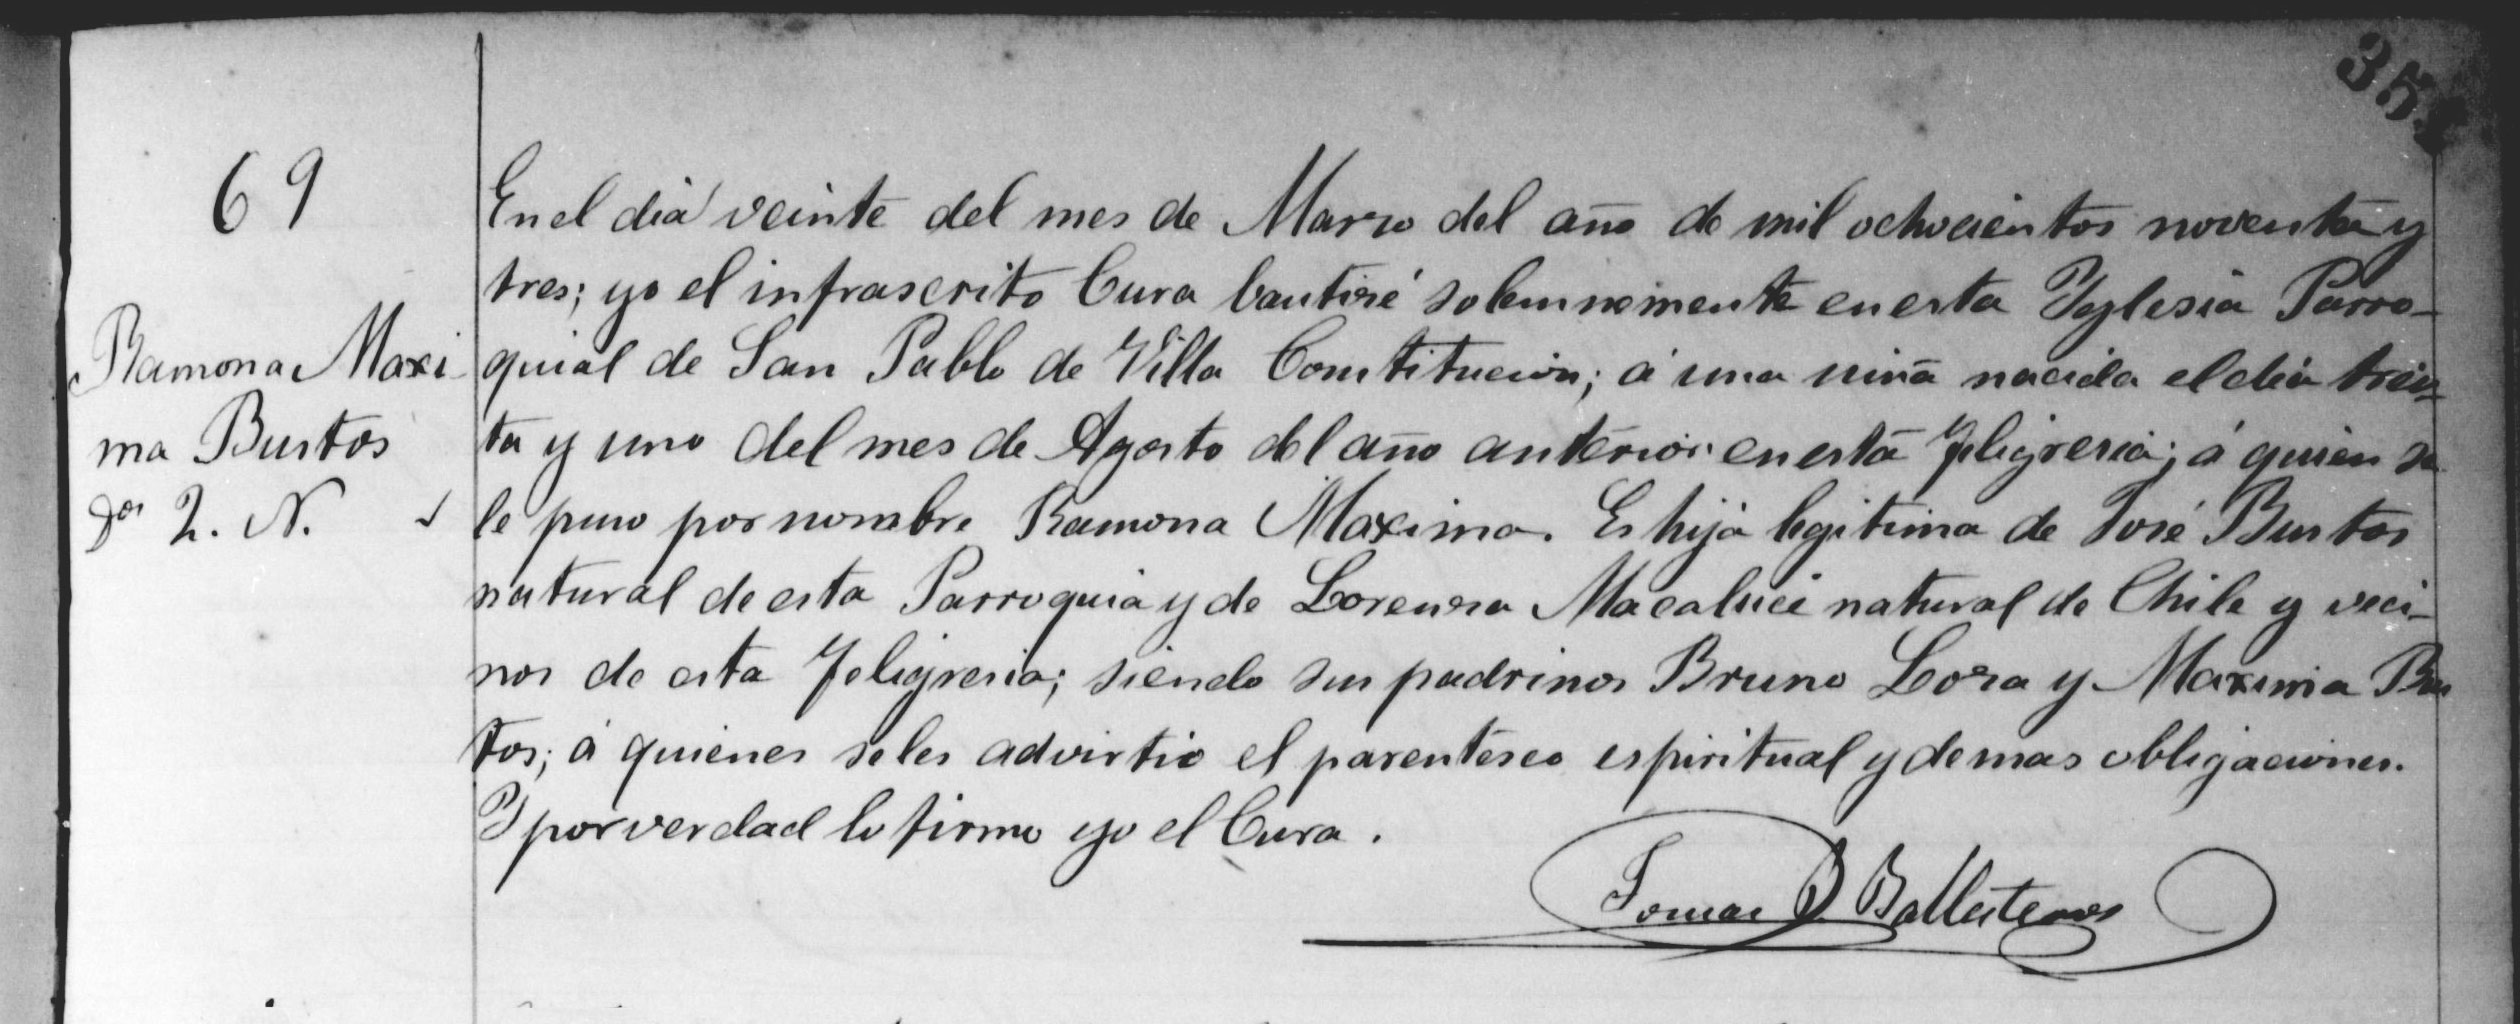 69
Ramona Maxi-
ma Bustos
2. N.
En el dia veinte del mes de Marzo del año de mil ochocientos noventa y
tres; yo el infrascrito Cura bautizé solemnemente en esta Yglesia Parro-
quial de San Pablo de Villa Constitucion; á una niña nacida el dia trein-
ta y uno del mes de Agosto del año anterior en esta feligresia; á quien se
le puso por nombre Ramona Maxima. Es hija legitima de José Bustos
natural de esta Parroquia y de Lorensa natural de Chile y veci-
nos de esta feligresia; siendo sus padrinos Bruno Lora y Maxima Bus
tos; á quienes se les advirtio el parentesco espiritual y demas obligaciones.
Y por verdad lo firmo yo el Cura.
Tomas B. Ballesteros